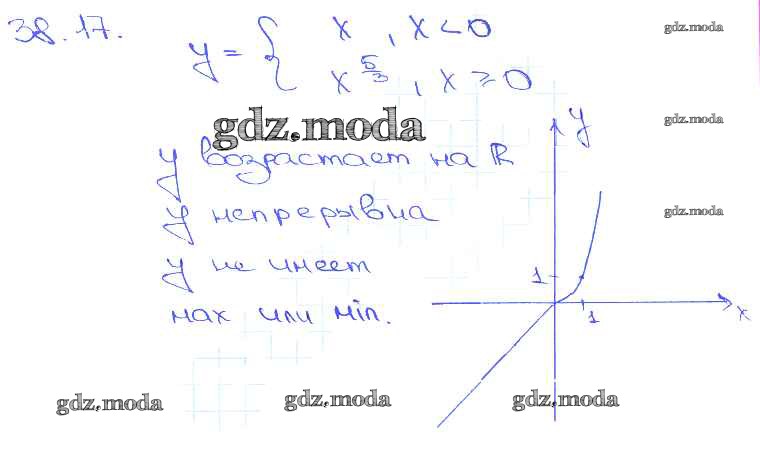 38.17.
y = { x, x < 0
x^(5/3), x ≥ 0
gdz.moda
gdz.moda
gdz.moda
y возрастает на R
y непрерывна
gdz.moda
y не имеет
max или min.
y
1
1
x
gdz.moda
gdz.moda
gdz.moda